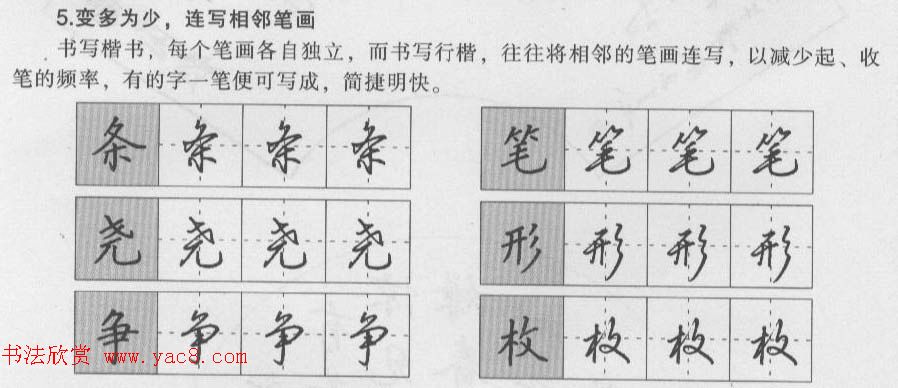 5.变多为少，连写相邻笔画
书写楷书，每个笔画各自独立，而书写行楷，往往将相邻的笔画连写，以减少起、收
笔的频率，有的字一笔便可写成，简捷明快。
条 条 条 条 笔 笔 笔 笔
尧 尧 尧 尧 形 形 形 形
争 争 争 争 枚 枚 枚 枚
书法欣赏 www.yac8.com